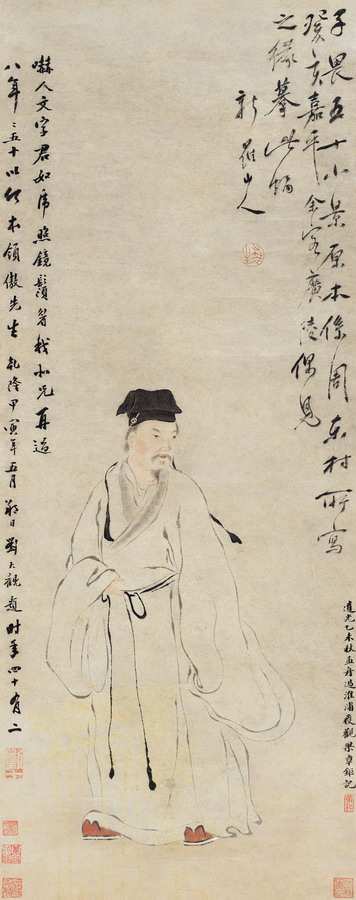 子畏五十小景原本係周東村所寫
癸亥嘉平余客廣陵偶見
之緣摹此幅
新羅山人
道光乙未秋孟舟過淮浦獲觀梁章鉅記
嚇人文字君如虎照鏡鬚眉我小兄再過
八年五十以何本領傲先生 乾隆甲寅年五月朔日劉大觀題時年四十有二